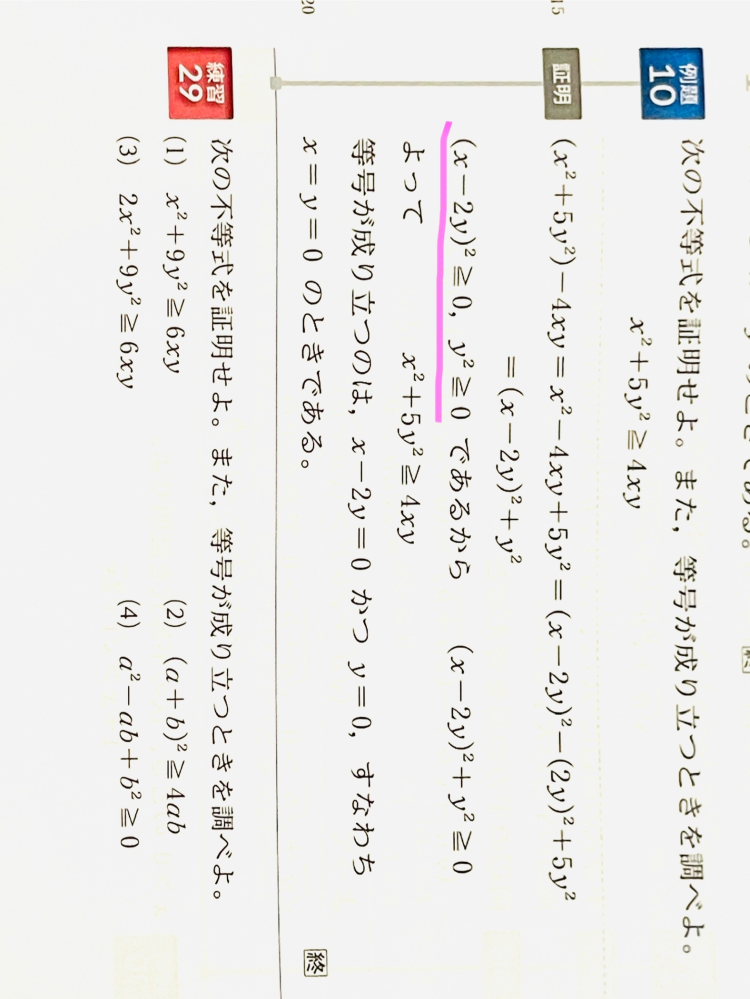 のときである。
終
15
20
例題 10
次の不等式を証明せよ。また,等号が成り立つときを調べよ。
x²+5y²≧4xy
証明
(x²+5y²)−4xy=x²−4xy+5y²=(x−2y)²−(2y)²+5y²
=(x−2y)²+y²
(x−2y)²≧0, y²≧0 であるから (x−2y)²+y²≧0
よって x²+5y²≧4xy
等号が成り立つのは, x−2y=0 かつ y=0, すなわち
x=y=0 のときである。
終
練習 29
次の不等式を証明せよ。また,等号が成り立つときを調べよ。
(1) x²+9y²≧6xy (2) (a+b)²≧4ab
(3) 2x²+9y²≧6xy (4) a²−ab+b²≧0